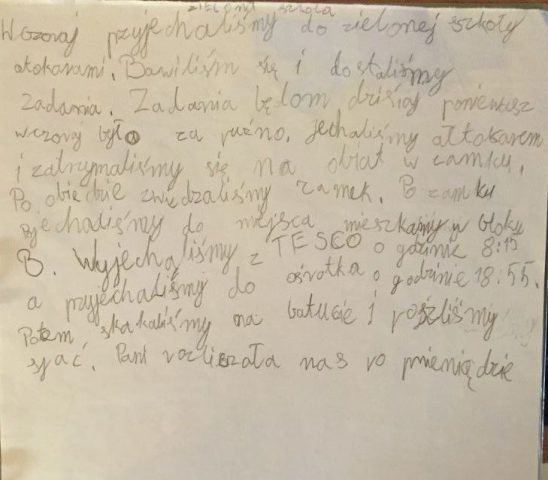 zielona szkoła
Wczoraj przyjechaliśmy do zielonej szkoły
ałokarami. Bawiliśm się i dostaliśmy
zadania. Zadania będom dziśaj poniewasz
wczory było za puźno. jechaliśmy ałtokarem
i zatrzymaliśmy się na obiat w camku.
Po obiedzie zwiedzaliśmy zamek. Po zamku
jechaliśmy do miejsca mieszkamy w bloku
B. Wyjechaliśmy z TESCO o godzinie 8:15
a przyjechaliśmy do ośrotka o godzinie 18:55.
Potem skakaliśmy na batucie i poszliśmy
spać. Pani rozliczała nas po pnieniędzie